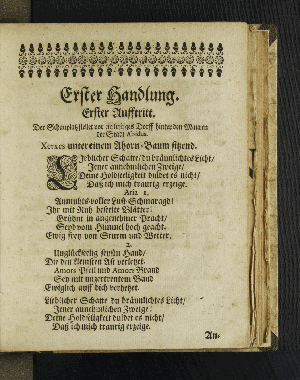 Erster Handlung.
Erster Aufftritt.
Der Schauplatz stellet vor ein lustiges Dorff hinter den Mauren
der Stadt Abidus.
XERXES unter einem Ahorn-Baum sitzend.
Lieblicher Schatte/ du bräunlichtes Licht/
Jener annehmlichen Zweige/
Deine Holdseeligkeit duldet es nicht/
Daß ich mich traurig erzeige.
Aria 1.
Anmuhts-voller Lust-Schmaragd!
Ihr mit Ruh besetzte Blätter!
Grühnt in angenehmer Pracht/
Seyd vom Himmel hoch geacht.
Ewig frey von Sturm und Wetter.
2.
Unglückselig seysen Hand/
Die den kleinsten Ast verletzet.
Amors Pfeil und Amors Brand
Sey mit unzertrentem Band
Ewiglich auff dich verhetzet.
Lieblicher Schatte du bräunlichtes Licht/
Jener annehmlichen Zweige/
Deine Holdseligkeit duldet es nicht/
Daß ich mich traurig erzeige.
An-